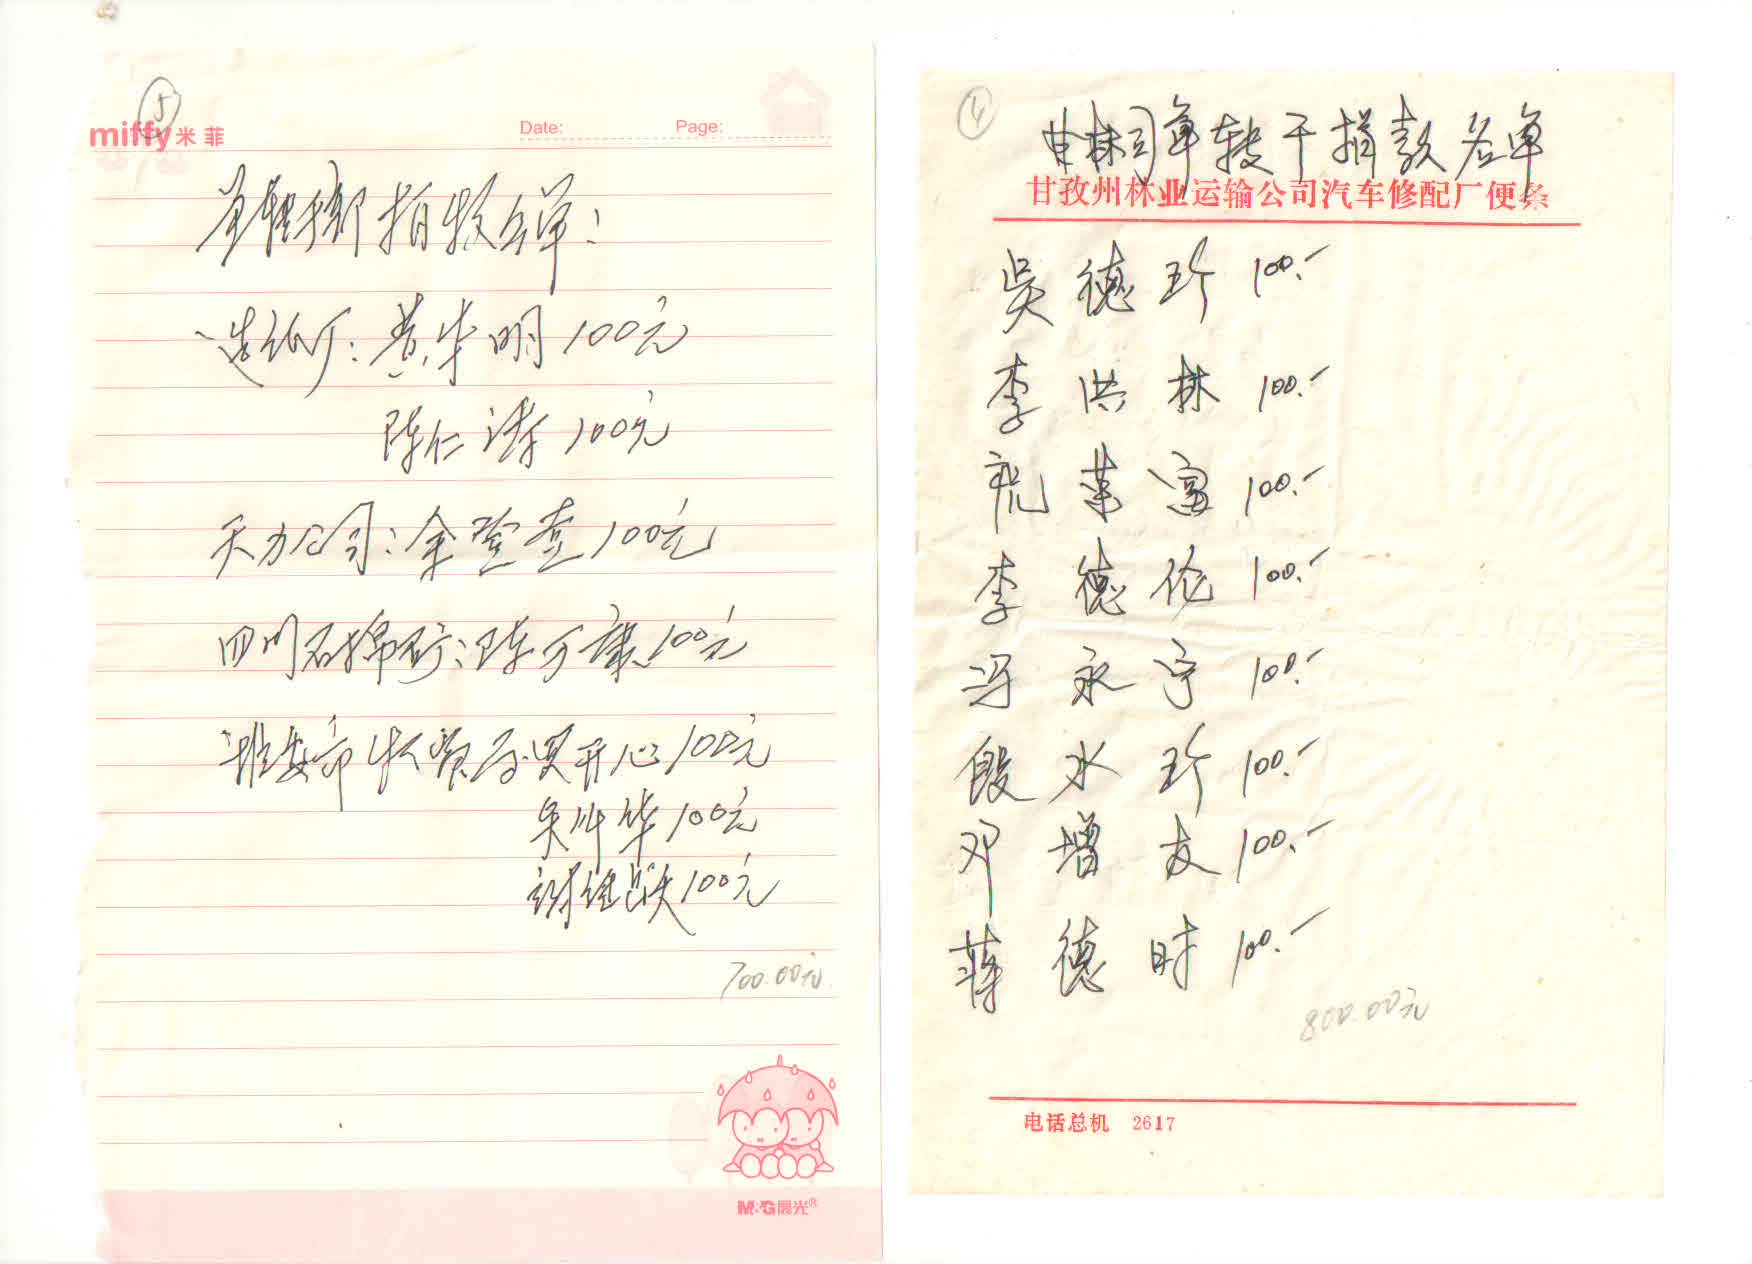 ⑤
miffy 米菲
Date: Page:
军转干部捐款名单:
造纸厂: 黄华明 100元
陈仁涛 100元
天力公司: 余登奎 100元
四川石棉矿: 陈万康 100元
雅安市物资局: 吴开心 100元
吴师华 100元
谢继 100元
700.00元
M&G晨光®
④
甘林司军转干捐款名单
甘孜州林业运输公司汽车修配厂便条
吴德珍 100.-
李洪林 100.-
祝荣富 100.-
李德伦 100.-
冯永宁 100.-
殷水珍 100.-
邓增友 100.-
蒋德时 100.-
800.00元
电话总机 2617